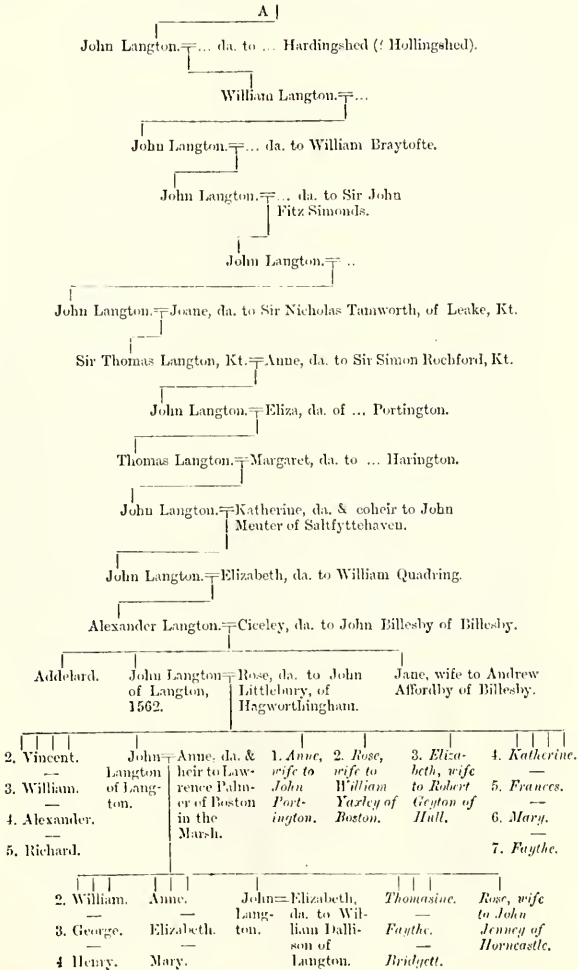 A
John Langton. ... da. to ... Hardingshed (? Hollingshed).
William Langton. ...
John Langton. ... da. to William Braytofte.
John Langton. ... da. to Sir John
Fitz Simonds.
John Langton. ..
John Langton. Joane, da. to Sir Nicholas Tamworth, of Leake, Kt.
Sir Thomas Langton, Kt. Anne, da. to Sir Simon Rochford, Kt.
John Langton. Eliza, da. of ... Portington.
Thomas Langton. Margaret, da. to ... Harington.
John Langton. Katherine, da. & coheir to John
Meuter of Saltfyttehaven.
John Langton. Elizabeth, da. to William Quadring.
Alexander Langton. Ciceley, da. to John Billesby of Billesby.
Addelard.
John Langton
of Langton,
1562.
Rose, da. to John
Littlebury, of
Hagworthingham.
Jane, wife to Andrew
Affordby of Billesby.
2. Vincent.
—
3. William.
—
4. Alexander.
—
5. Richard.
John
Langton
of Lang-
ton.
Anne, da. &
heir to Law-
rence Palm-
er of Boston
in the
Marsh.
1. Anne,
wife to
John
Port-
ington.
2. Rose,
wife to
William
Yaxley of
Boston.
3. Eliza-
beth, wife
to Robert
Geyton of
Hull.
4. Katherine.
—
5. Frances.
—
6. Mary.
—
7. Faythe.
2. William.
—
3. George.
—
4 Henry.
Anne.
—
Elizabeth.
—
Mary.
John
Lang-
ton.
Elizabeth,
da. to Wil-
liam Dalli-
son of
Langton.
Thomasine.
—
Faythe.
—
Bridgett.
Rose, wife
to John
Jenney of
Horncastle.